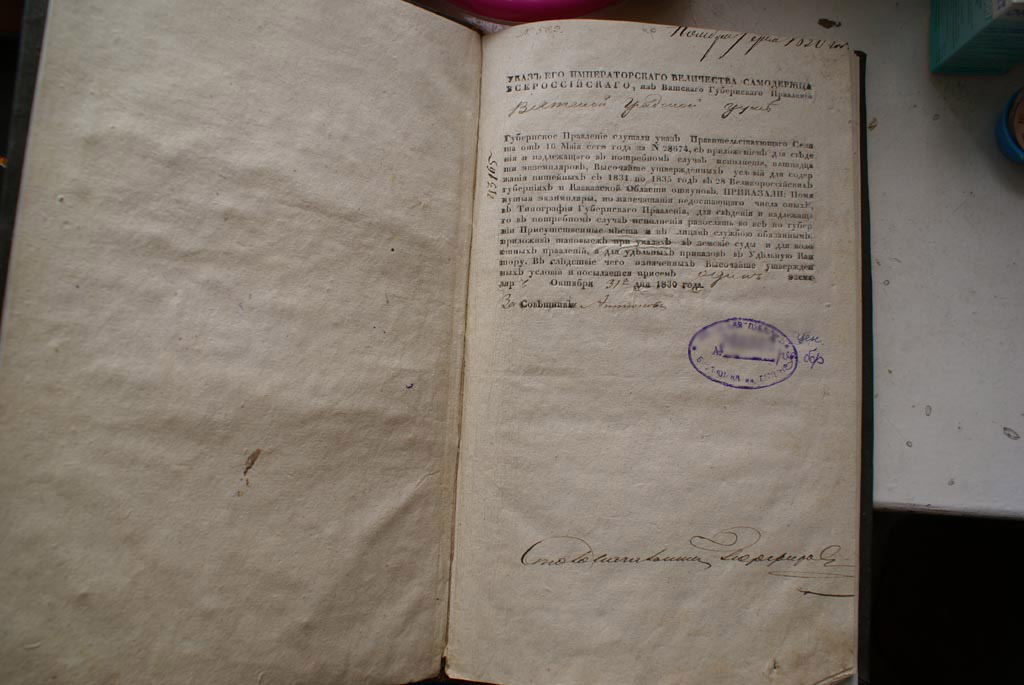 № 502.
1830
УКАЗЪ ЕГО ИМПЕРАТОРСКАГО ВЕЛИЧЕСТВА САМОДЕРЖЦА
ВСЕРОССІЙСКАГО, изъ Вятскаго Губернскаго Правленія
Вятской градской
Губернское Правленіе слушали указъ Правительствующаго Сена
та отъ 16 Маія сего года за N 28674, съ приложеніемъ для свѣде
нія и надлежащаго въ потребномъ случаѣ исполненія,
экземпляровъ, Высочайше утвержденныхъ условій для содер
жанія питейныхъ съ 1831 по 1835 годъ въ 28 Великороссійскихъ
губерніяхъ и Кавказской Области откуповъ. ПРИКАЗАЛИ: Помя
нутыя экземпляры, по напечатаніи недостающаго числа оныхъ,
въ Типографіи Губернскаго Правленія, для свѣденія и надлежаща
го въ потребномъ случаѣ исполненія разослать во всѣ по губер
ніи Присутственные мѣста и къ лицамъ службою обязаннымъ,
приложивъ таковыежъ при указахъ въ земские суды и для воло
стныхъ правленій, а для удѣльныхъ приказовъ въ Удѣльную Кон
тору. Въ слѣдствіе чего означенныхъ Высочайше утвержден
ныхъ условій и посылается присемъ одинъ экзем
пляр Октября 31 дня 1830 года.
За Совѣтника
№
цен.
бр